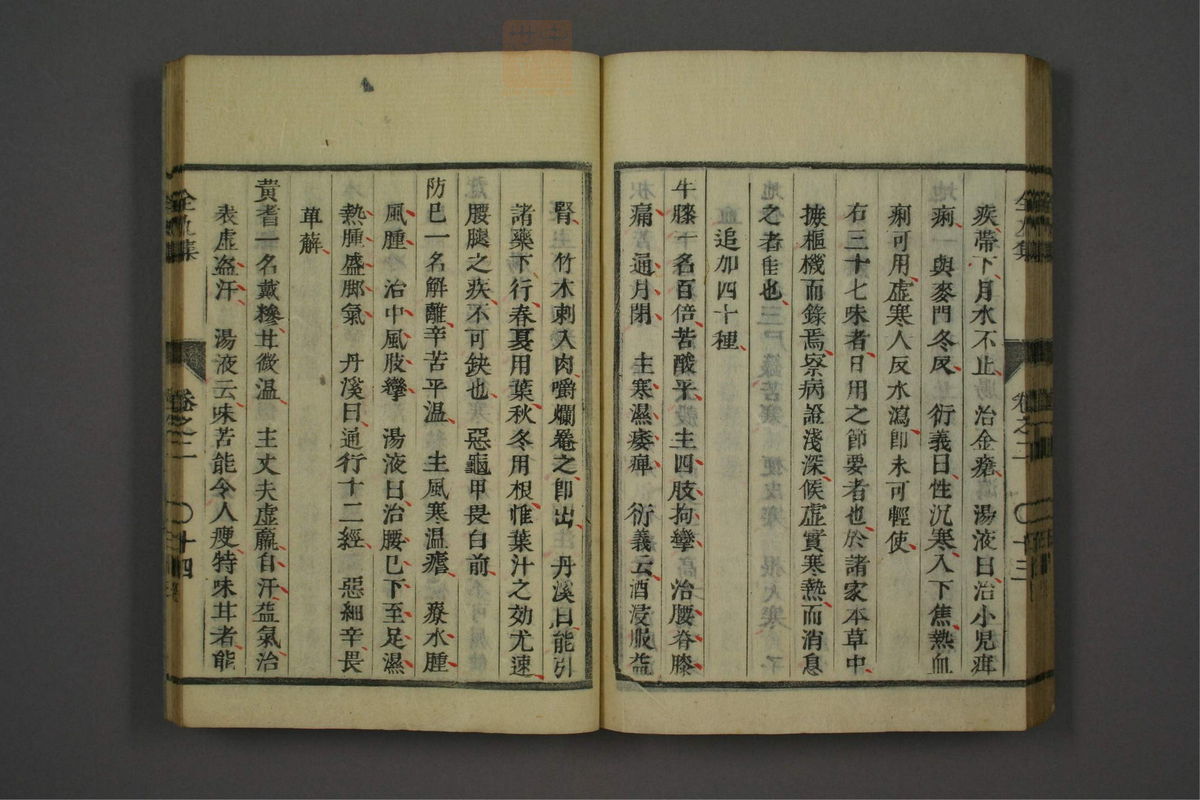 疾帶下月水不止 治金瘡 湯液曰治小児疳
痢 與麥門冬反 衍義曰性沉寒入下焦熱血
痢可用虚寒人反水瀉即未可輕使
右三十七味者日用之節要者也於諸家本草中
摭樞機而録焉察病證淺深候虚實寒熱而消息
之者佳也
追加四十種
牛膝一名百倍苦酸平 主四肢拘攣 治腰脊膝
痛 通月閉 主寒濕痿痺 衍義云酒浸服益
全九集
卷之二
〇十三
腎 竹木刺入肉嚼爛罨之即出 丹溪曰能引
諸藥下行春夏用葉秋冬用根惟葉汁之効尤速
腰腿之疾不可缺也 惡龜甲畏白前
防巳一名解離辛苦平温 主風寒温瘧 療水腫
風腫 治中風肢攣 湯液曰治腰已下至足濕
熱腫盛脚氣 丹溪曰通行十二經 惡細辛畏
萆薢
黃耆一名戴糝甘微温 主丈夫虚羸自汗益氣治
表虚盗汗 湯液云味苦能令人瘦特味甘者能
全九集
卷之二
〇十四